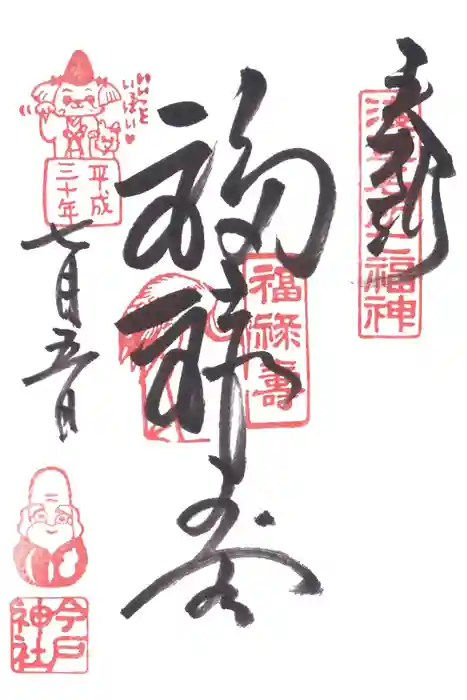 奉拝
浅草名所七福神
福禄寿
福禄壽
いいこと
いっぱい♥
平成
三十年
七月五日
今戸
神社